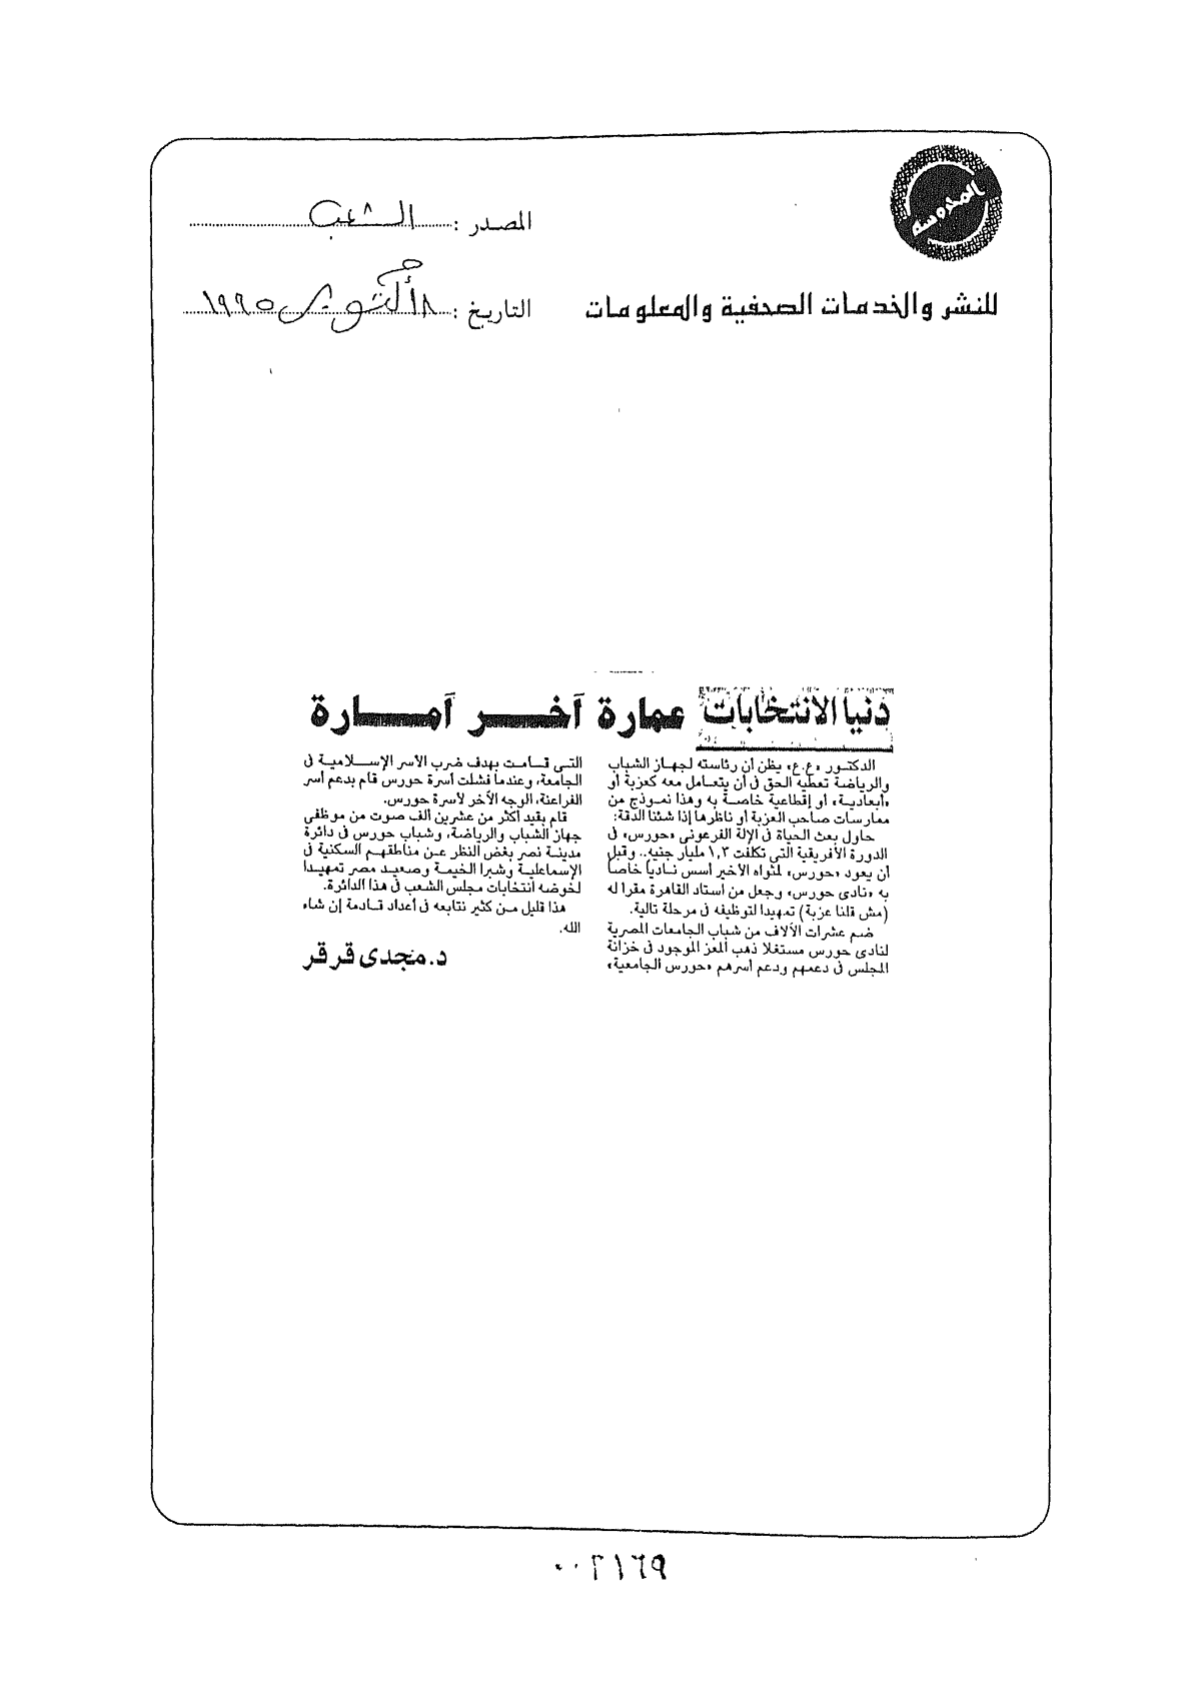 المدرسة
المصدر : الشعب
للنشر والخدمات الصحفية والمعلومات
التاريخ : أكتوبر ١٩٩٥
دنيا الانتخابات
عمارة آخر آمارة
الدكتور «ع.ع» يظن أن رئاسته لجهاز الشباب
والرياضة تعطيه الحق فى أن يتعامل معه كعزبة أو
«أبعادية» أو إقطاعية خاصة به وهذا نموذج من
ممارسات صاحب العزبة أو ناظرها إذا شئنا الدقة:
حاول بعث الحياة فى الإله الفرعونى «حورس» فى
الدورة الأفريقية التى تكلفت ١,٣ مليار جنيه.. وقبل
أن يعود «حورس» لمثواه الأخير أسس نادياً خاصاً
به «نادى حورس» وجعل من أستاد القاهرة مقرا له
(مش قلنا عزبة) تمهيدا لتوظيفه فى مرحلة تالية.
ضم عشرات الآلاف من شباب الجامعات المصرية
لنادى حورس مستغلا ذهب المعز الموجود فى خزانة
المجلس فى دعمهم ودعم أسرهم «حورس الجامعية»
التى قامت بهدف ضرب الأسر الإسلامية فى
الجامعة، وعندما فشلت أسرة حورس قام بدعم أسر
الفراعنة، الوجه الآخر لأسرة حورس.
قام بقيد أكثر من عشرين ألف صوت من موظفى
جهاز الشباب والرياضة، وشباب حورس فى دائرة
مدينة نصر بغض النظر عن مناطقهم السكنية فى
الإسماعلية وشبرا الخيمة وصعيد مصر تمهيدا
لخوضه انتخابات مجلس الشعب فى هذا الدائرة.
هذا قليل من كثير نتابعه فى أعداد قادمة إن شاء
الله.
د. مجدى قرقر
٠٠٢١٦٩